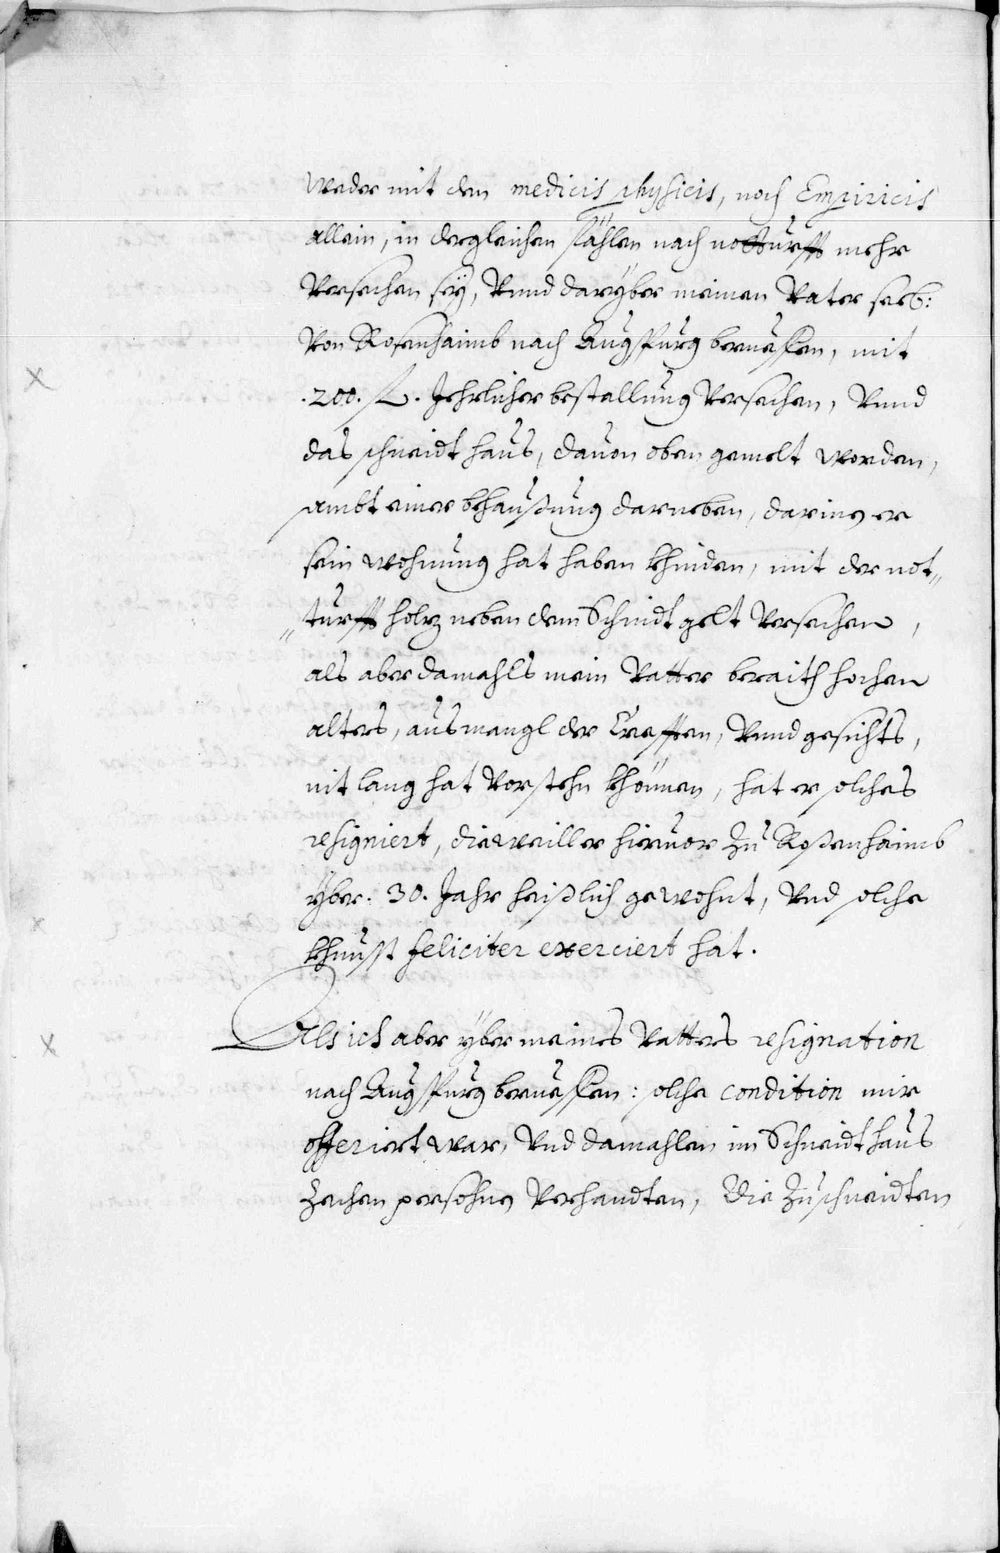 Weder mit den medicis physicis, noch Empiricis
allein, in dergleichen fählen nach notturfft mehr
Versechen seÿ, Vnnd darÿber meinen Vater seeb:
Von Rosenhaimb nach Augspurg berueffen, mit
.200. fl. Jehrlicher bestallung Versechen, Vnnd
das schneidt haus, dauon oben gemelt worden,
sambt einer behaußung darneben, darinen er
sein wohnung hat haben khinden, mit der not„
„turfft holz neben dem Schnidt gelt Versechen,
als aber damahls mein Vatter beraith hochen
alters, aus mangl der Crefften, Vnnd gesichts,
nit lang hat Vorstehn khönnen, hat er solches
resigniert, dieweill er hieuor Zu Roßenhaimb
ÿber. 30. Jahr heißlich gewohnt, Vnd solche
khunst feliciter exerciert hat.
Als ich aber ÿber meines Vatters resignation
nach Augspurg berueffen: solche condition mir
offeriert war, Vnd damahlen im Schneidt haus
Zechen persohnen Verhandten, die Zuschneidten